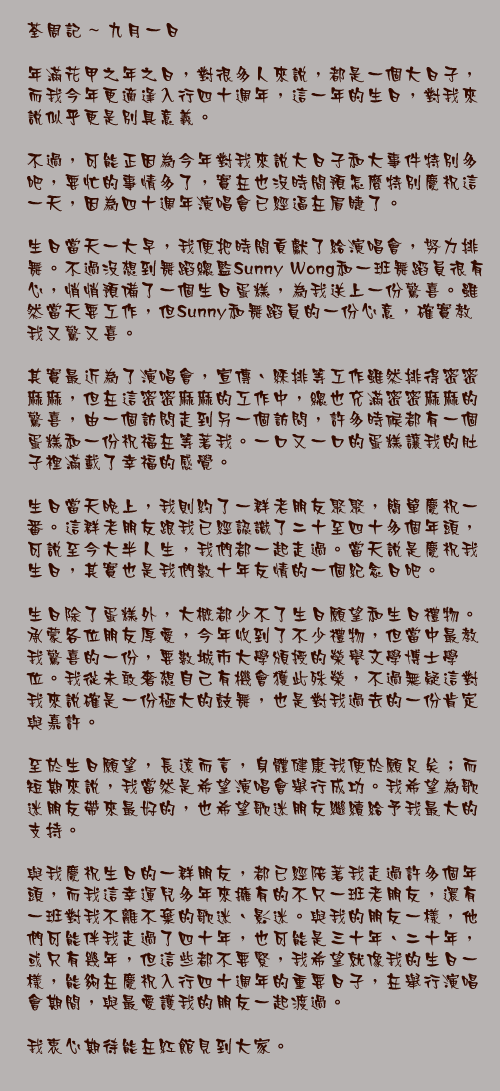 荃周記 ~ 九月一日
年滿花甲之年之日，對很多人來說，都是一個大日子，
而我今年更適逢入行四十週年，這一年的生日，對我來
說似乎更是別具意義。
不過，可能正因為今年對我來說大日子和大事件特別多
吧，要忙的事情多了，實在也沒時間預怎麼特別慶祝這
一天，因為四十週年演唱會已經逼在眉睫了。
生日當天一大早，我便把時間貢獻了給演唱會，努力排
舞。不過沒想到舞蹈總監Sunny Wong和一班舞蹈員很有
心，悄悄預備了一個生日蛋糕，為我送上一份驚喜。雖
然當天要工作，但Sunny和舞蹈員的一份心意，確實教
我又驚又喜。
其實最近為了演唱會，宣傳、綵排等工作雖然排得密密
麻麻，但在這密密麻麻的工作中，總也充滿密密麻麻的
驚喜，由一個訪問走到另一個訪問，許多時候都有一個
蛋糕和一份祝福在等著我。一口又一口的蛋糕讓我的肚
子裡滿載了幸福的感覺。
生日當天晚上，我則約了一群老朋友聚聚，簡單慶祝一
番。這群老朋友跟我已經認識了二十至四十多個年頭，
可說至今大半人生，我們都一起走過。當天說是慶祝我
生日，其實也是我們數十年友情的一個紀念日吧。
生日除了蛋糕外，大概都少不了生日願望和生日禮物。
承蒙各位朋友厚愛，今年收到了不少禮物，但當中最教
我驚喜的一份，要數城市大學頒授的榮譽文學博士學
位。我從未敢奢想自己有機會獲此殊榮，不過無疑這對
我來說確是一份極大的鼓舞，也是對我過去的一份肯定
與嘉許。
至於生日願望，長遠而言，身體健康我便於願足矣；而
短期來說，我當然是希望演唱會舉行成功。我希望為歌
迷朋友帶來最好的，也希望歌迷朋友繼續給予我最大的
支持。
與我慶祝生日的一群朋友，都已經陪著我走過許多個年
頭，而我這幸運兒多年來擁有的不只一班老朋友，還有
一班對我不離不棄的歌迷、影迷。與我的朋友一樣，他
們可能伴我走過了四十年，也可能是三十年、二十年，
或只有幾年，但這些都不要緊，我希望就像我的生日一
樣，能夠在慶祝入行四十週年的重要日子，在舉行演唱
會期間，與最愛護我的朋友一起渡過。
我衷心期待能在紅館見到大家。